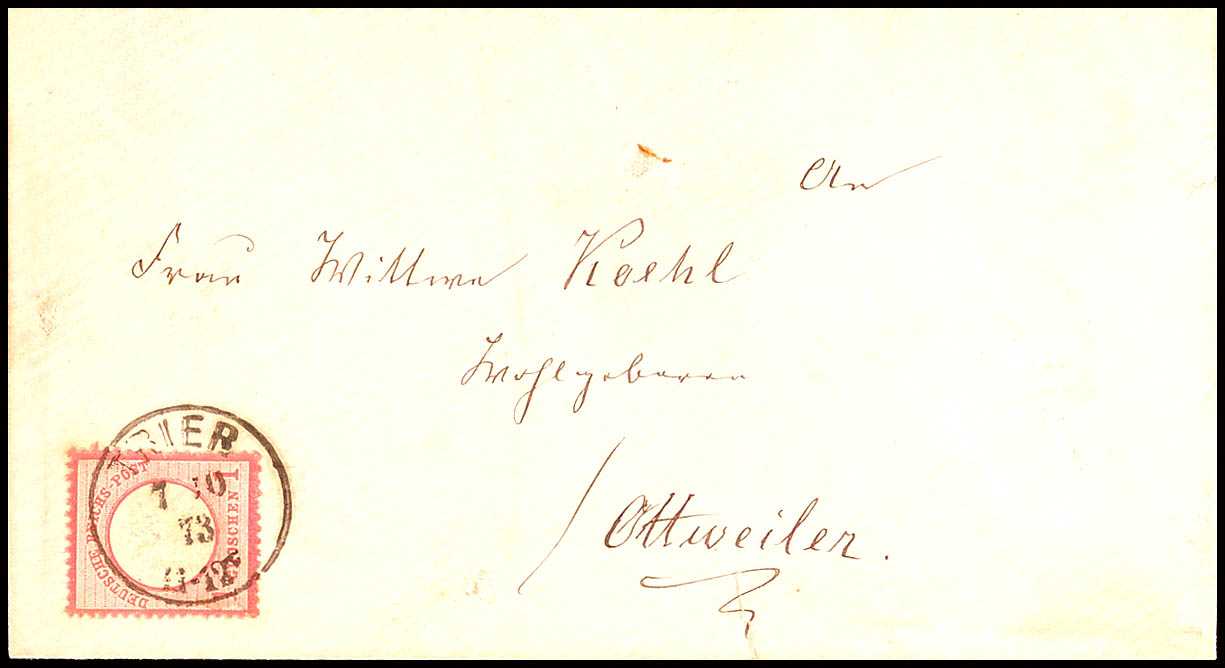 An
Frau Wittwe Koehl
Wohlgeboren
Ottweiler.
TRIER
7 10
73
11-12
DEUTSCHE REICHS-POST
1 GROSCHEN